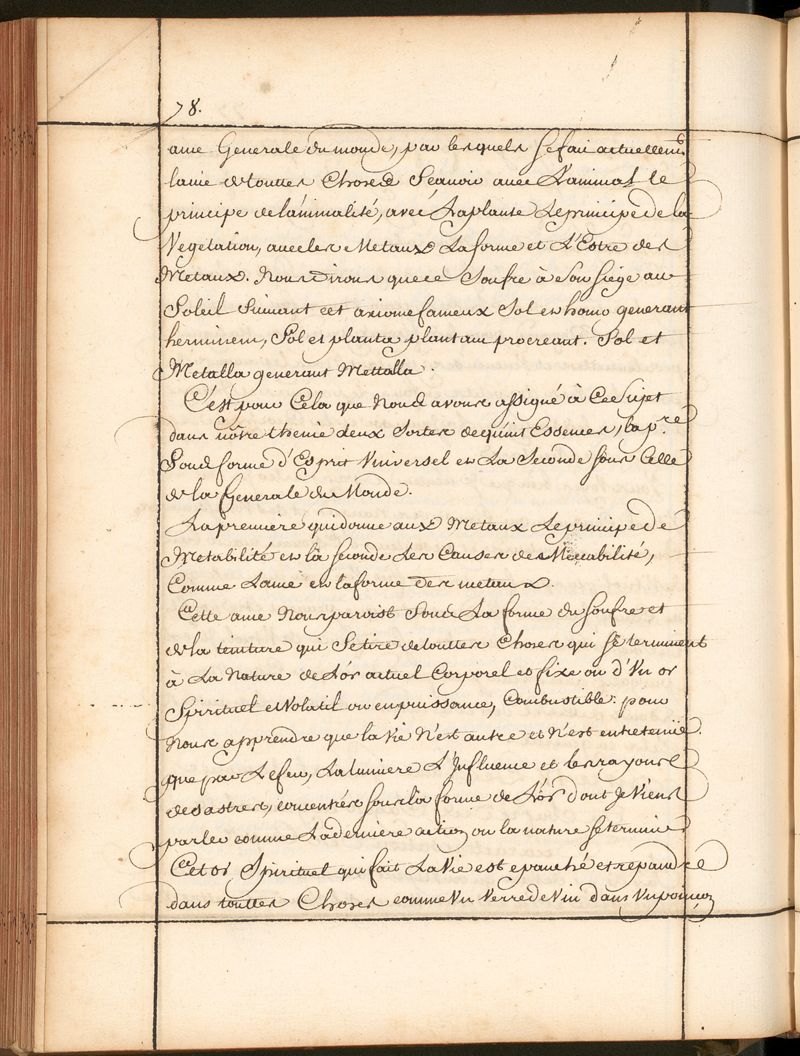 78.
ame Generale du monde, par lesquels se fait actuellemt.
lame de touttes Choses Scavoir avec L'animal le
principe de lánimalité, avec La plante Le principe de la
Vegetation, avec les Metaux La forme et L'Estre des
Metaux. Nous Dirons que ce Soufre à Son siége au
Soleil Suivant cet axiome fameux Sol en homo generant
herminem, Sol et planta plantam procreant. Sol et
Metalla generant Mettalla.
C'est pour Cela que Nous avons assigné à Ce Sujet
dans nôtre theme deux Sortes de quint Essences, la pre.
Sous forme d'Esprit Vniversel et La Seconde sous Celle
de la Generale du Monde.
La premiere qui donne aux Metaux Le principe de
Metabilité et la seconde Les Causes de Mecabilité,
Comme Lame et la forme Des metaux.
Cette ame Nous paroist Sous La forme du soufre et
de la teinture qui Se tire de touttes Choses qui se terminent
à La Nature de L'or actuel Corporel et fixe ou d'Vn or
Spirituel et Volatil ou en puissance, Combustible. pour
Nous apprendre que la Vie N'est autre et N'est entretenüe
que par Le feu, La lumiere L'Influence et les rayons
des astres, concentrés sous la forme de L'or dont Je Viens
parler comme La derniere action ou la nature se termine
Cet or Spirituel qui fait La Vie est epanché et repandüe
dans touttes Choses comme Vn Verre de Vin dans Vn poinçon